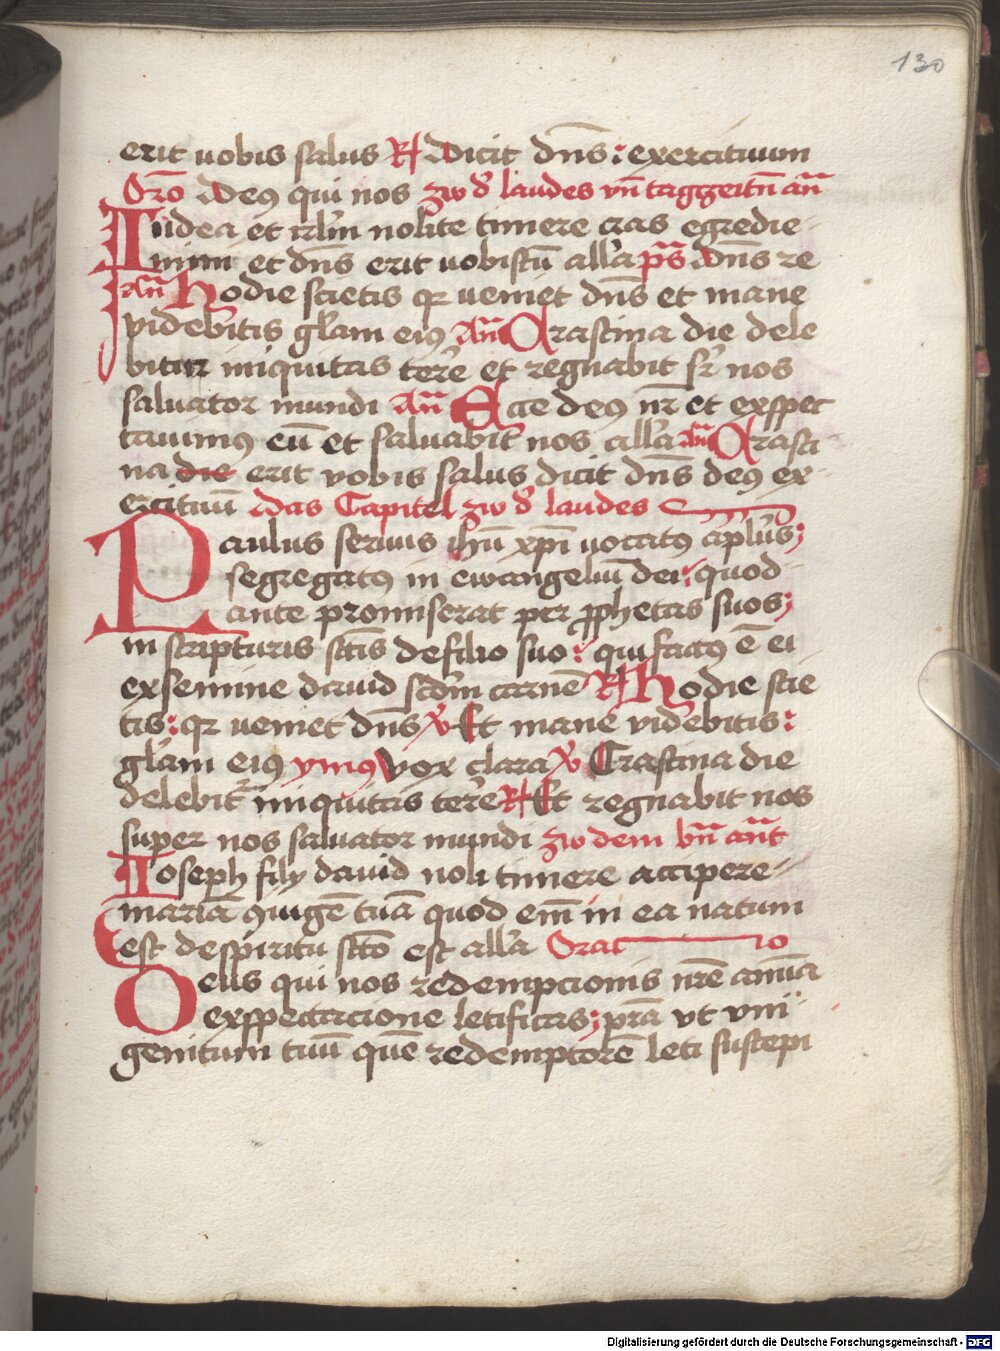 130
erit uobis salus R Dicit dn̄s: exercituum
Oro Deus qui nos zw d' laudes vn̄ taggzeitn̄ an̄
Iudea et irl'm nolite timere cras egredie
mini et dn̄s erit uobiscū all'a ps Dn̄s re
An̄ Hodie scietis qr ueniet dn̄s et mane
videb'itis gl'am eius An̄ Crastina die dele
bitur iniquitas terre et regnabit sr nos
saluator mundi An̄ Ecce deus nr et exspec
tauimus eū et saluabit nos all'a An̄ Crasti
na die erit vobis salus dicit dn̄s deus ex
ercituū Das Capitel zw d' laudes
Paulus seruus ihū xp̄i uocatus ap'lus;
segregatus in ewangeliū dei: quod
ante promiserat per prophetas suos;
in scripturis sctis de filio suo: qui factus ē ei
ex semine dauid scd'm carnē R Hodie scie
tis: qr ueniet dn̄s V Et mane videbitis:
gl'am eius ymus Vox clara V Crastina die
delebit' iniquitas terre R Et regnabit nos
super nos saluator mundi zw dem bn̄ an̄t
Ioseph fily dauid noli timere accipere
mariā 9iugē tuā quod em̄ in ea natum
est de spiritu scto est all'a Oracio
Deus qui nos redempcionis nr̄e annua
exspectacione letificas; pr̄a vt vni
genitum tuū quē redemptorē leti suscepi
Digitalisierung gefördert durch die Deutsche Forschungsgemeinschaft - DFG